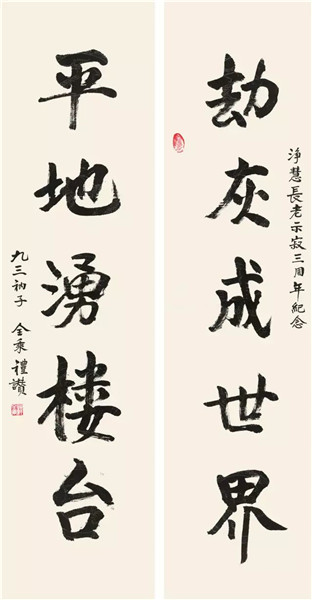 净慧長老示寂三周年紀念
劫灰成世界
平地湧楼台
九三衲子 全乘禮讚